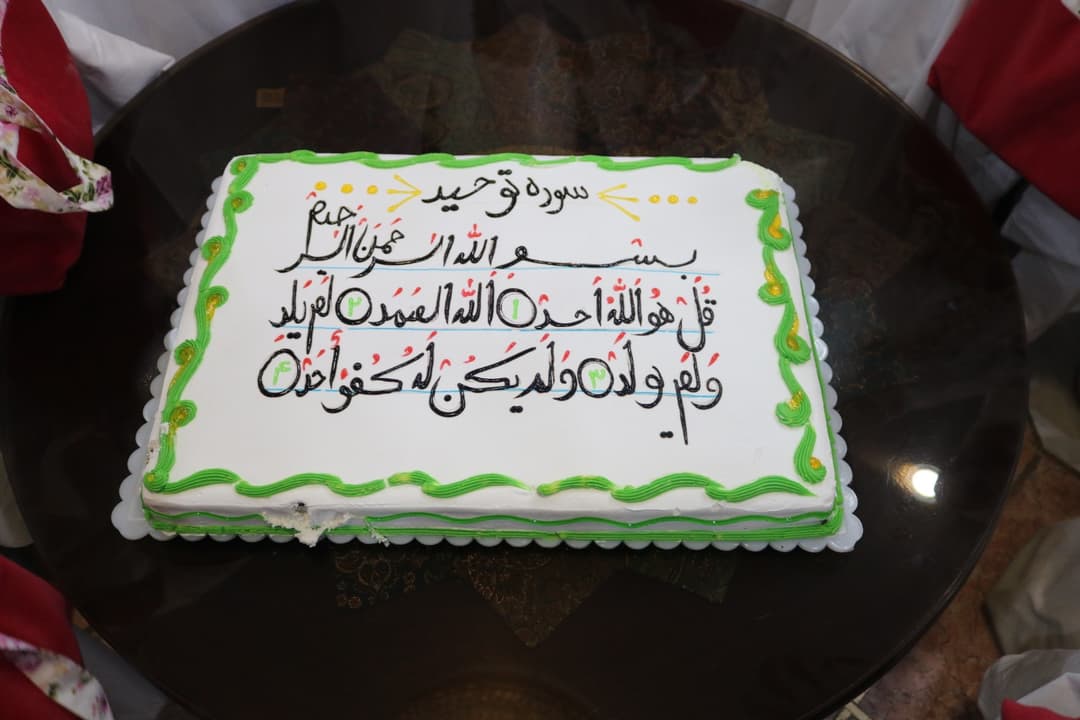 سوره توحید
بسم الله الرحمن الرحیم
قُل هُوَ اللهُ اَحد ۱ اَلله الصَمَد ۲ لَم یَلِد
وَ لَم یولَد ۳ وَ لَم یَکُن لَهُ کُفُواً اَحَد ۴